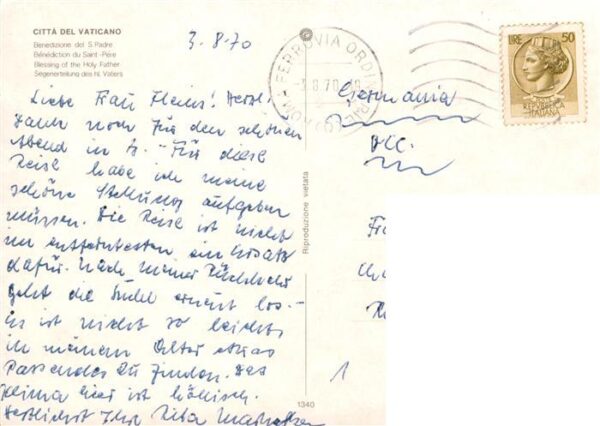 CITTÀ DEL VATICANO
Benedizione del S. Padre
Bénédiction du Saint-Père
Blessing of the Holy Father
Segenerteilung des hl. Vaters
3.8.70
Liebe Frau! Herzl.
Dank noch für den schönen
Abend in Für diese
Reise habe ich meine
schöne Stellung aufgeben
müssen. Die Reise ist nicht
im entferntesten ein Ersatz
dafür. Nach meiner Rückkehr
geht die Suche erneut los.-
Es ist nicht so leicht
in meinem Alter etwas
Passendes zu finden. Das
Klima hier ist höllisch.
Herzlichst Ihre Rita
Riproduzione vietata
1340
ROMA FERROVIA
8.70
LIRE 50
REPUBBLICA
ITALIANA
Germania
1